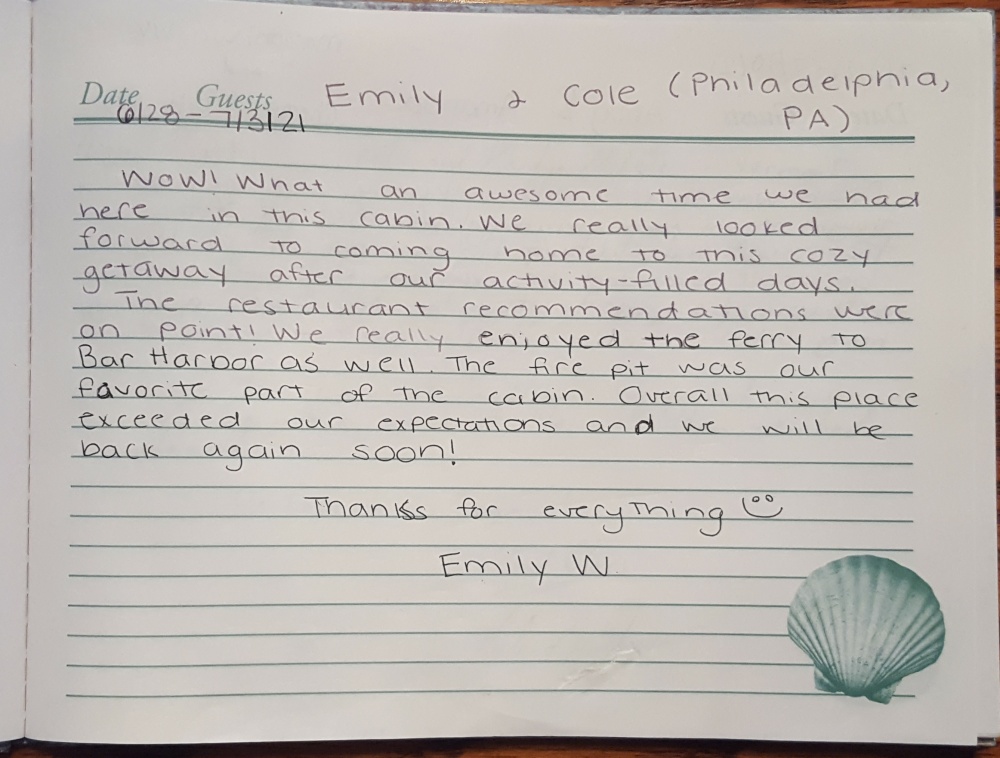 Date Guests Emily & Cole (Philadelphia,
6/28-7/3/21 PA)
Wow! What an awesome time we had
here in this cabin. We really looked
forward to coming home to this cozy
getaway after our activity-filled days.
The restaurant recommendations were
on point! We really enjoyed the ferry to
Bar Harbor as well. The fire pit was our
favorite part of the cabin. Overall this place
exceeded our expectations and we will be
back again soon!
Thanks for everything
Emily W.